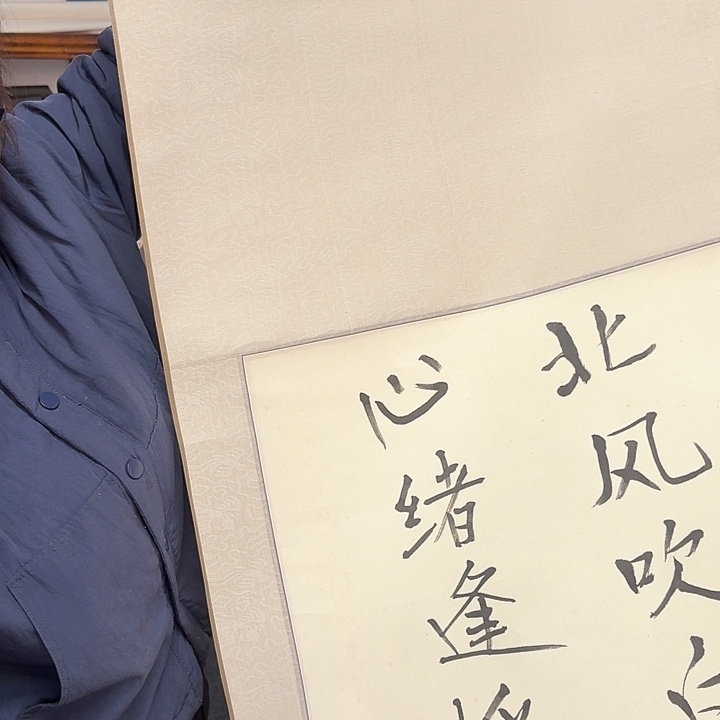 北风吹
心绪逢